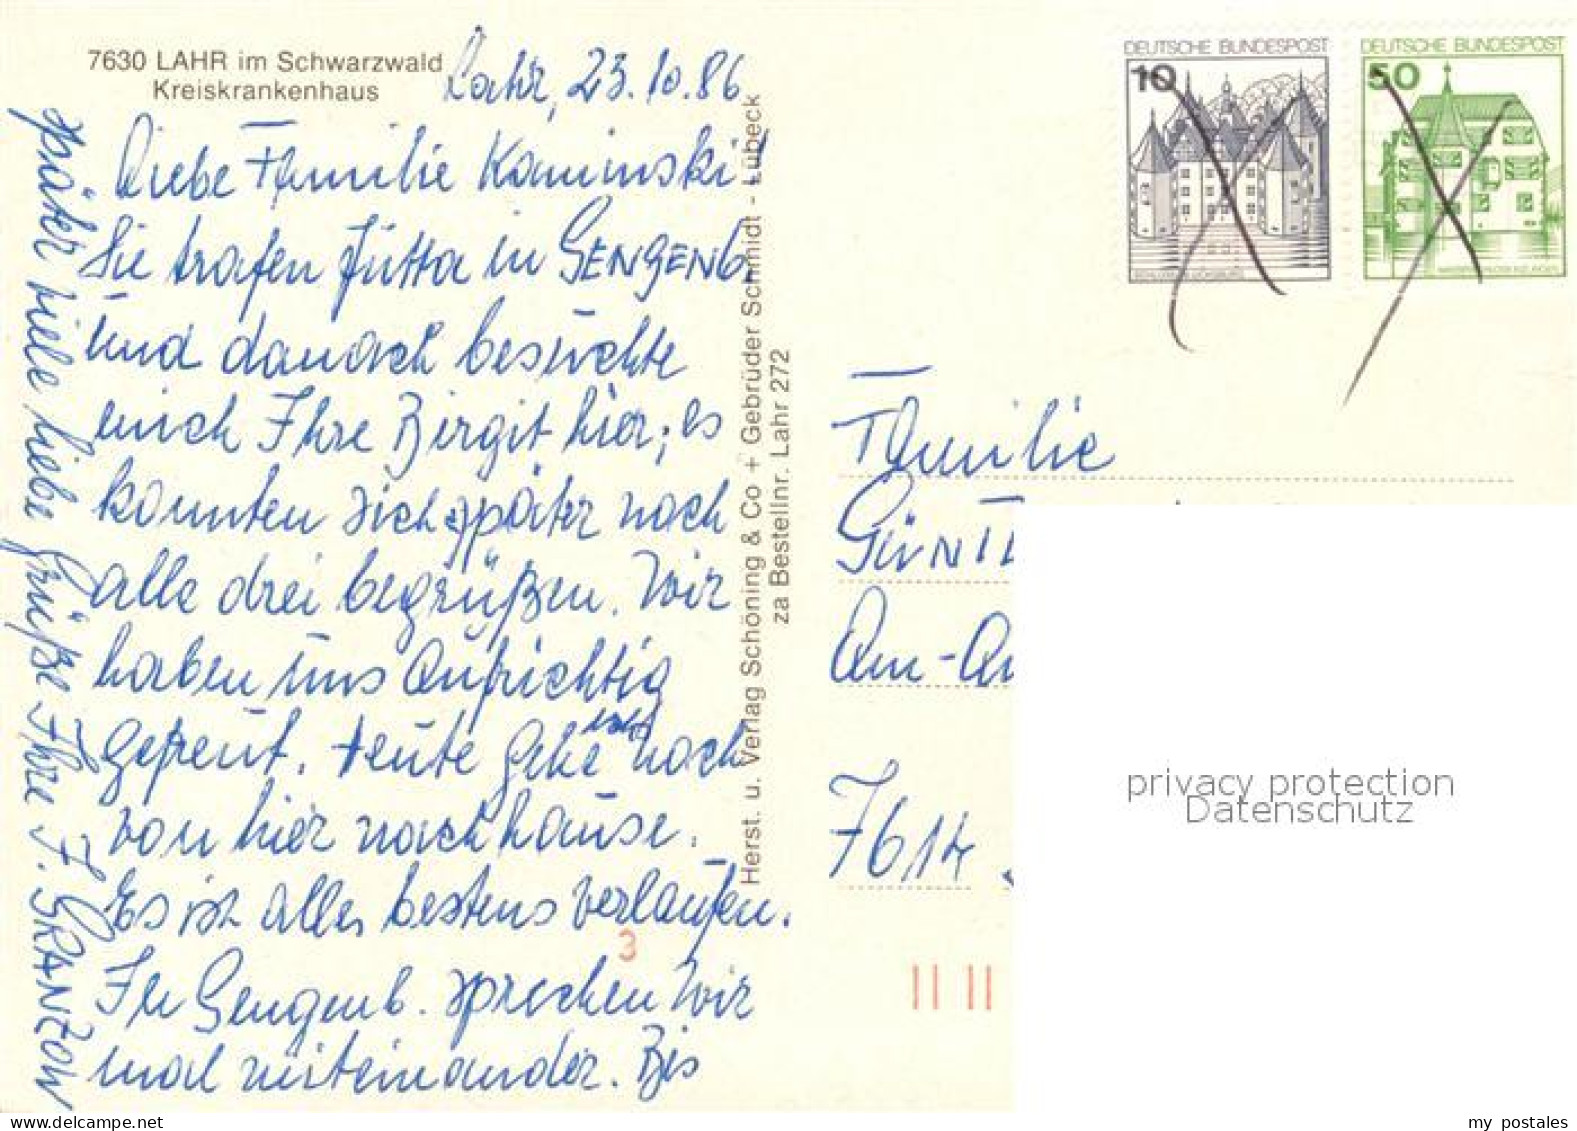 7630 LAHR im Schwarzwald
Kreiskrankenhaus
Lahr, 23.10.86
Liebe Familie Kaminski!
Sie trafen Jutta in GENGENB.
und danach besuchte
mich Ihre Birgit hier; es
konnten sich später noch
alle drei begrüßen. Wir
haben uns aufrichtig
gefreut. Heute gehe noch
von hier nachhause.
Es ist alles bestens verlaufen.
In Gengenb. sprechen wir
mal miteinander. Bis
später viele liebe Grüße Ihre F. GRANZOW
Herst. u. Verlag Schöning & Co + Gebrüder Schmidt - Lübeck
za Bestellnr. Lahr 272
DEUTSCHE BUNDESPOST
10
DEUTSCHE BUNDESPOST
50
Familie
GÜNT
Am-
7614
3
privacy protection
Datenschutz
my postales